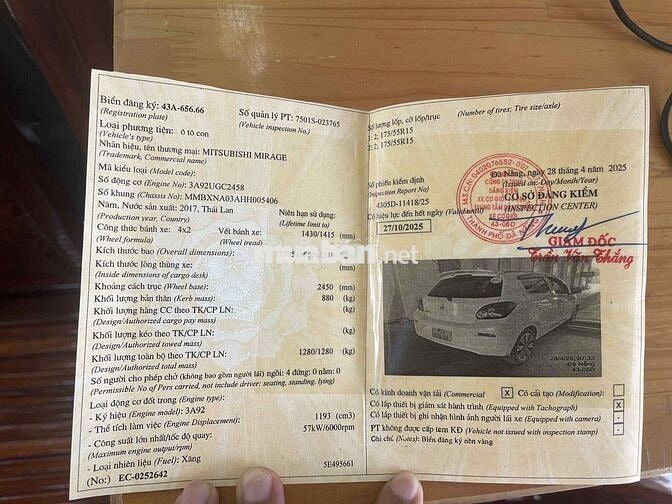 Biển đăng ký: 43A-656.66
(Registration plate)
Số quản lý PT: 7501S-023765
(Vehicle inspection No.)
Loại phương tiện: ô tô con
(Vehicle's type)
Nhãn hiệu, tên thương mại: MITSUBISHI MIRAGE
(Trademark, Commercial name)
Mã kiểu loại:
(Model code)
Số động cơ (Engine No): 3A92UGC2458
Số khung (Chassis No): MMBXNA03AHH005406
Năm, Nước sản xuất: 2017, Thái Lan
(Production year, Country)
Niên hạn sử dụng:
(Lifetime limit to)
Công thức bánh xe: 4x2
(Wheel formula)
Vết bánh xe: 1430/1415 (mm)
(Wheel tread)
Kích thước bao (Overall dimensions): (mm)
Kích thước lòng thùng xe: (mm)
(Inside dimensions of cargo desk)
Khoảng cách trục (Wheel base): 2450 (mm)
Khối lượng bản thân (Kerb mass): 880 (kg)
Khối lượng hàng CC theo TK/CP LN: (kg)
(Design/Authorized cargo pay mass)
Khối lượng kéo theo TK/CP LN: (kg)
(Design/Authorized towed mass)
Khối lượng toàn bộ theo TK/CP LN: 1280/1280 (kg)
(Design/Authorized total mass)
Số người cho phép chở (không bao gồm người lái) ngồi: 4 đứng: 0 nằm: 0
(Permissible No of Pers carried, not include driver: seating, standing, lying)
Loại động cơ đốt trong (Engine type):
- Ký hiệu (Engine model): 3A92
- Thể tích làm việc (Engine Displacement): 1193 (cm3)
- Công suất lớn nhất/tốc độ quay: 57kW/6000rpm
(Maximum engine output/rpm)
- Loại nhiên liệu (Fuel): Xăng
5E495661
(No:) EC-0252642
Số lượng lốp, cỡ lốp/trục (Number of tires; Tire size/axle)
1: 2; 175/55R15
2: 2; 175/55R15
Số phiếu kiểm định
(Inspection Report No)
4305D-11418/25
Có hiệu lực đến hết ngày (Valid until)
27/10/2025
Đà Nẵng, ngày 28 tháng 4 năm 2025
(Issued on: Day/Month/Year)
CƠ SỞ ĐĂNG KIỂM
(INSPECTION CENTER)
GIÁM ĐỐC
Trần Văn Thắng
28/4/25, 07:33
Đà Nẵng
43-05D
Có kinh doanh vận tải (Commercial X Có cải tạo (Modification):
Có lắp thiết bị giám sát hành trình (Equipped with Tachograph) X
Có lắp thiết bị ghi nhận hình ảnh người lái xe (Equipped with camera)
PT không được cấp tem KĐ (Vehicle not issued with inspection stamp)
Ghi chú (Notes): Biển đăng ký nền vàng